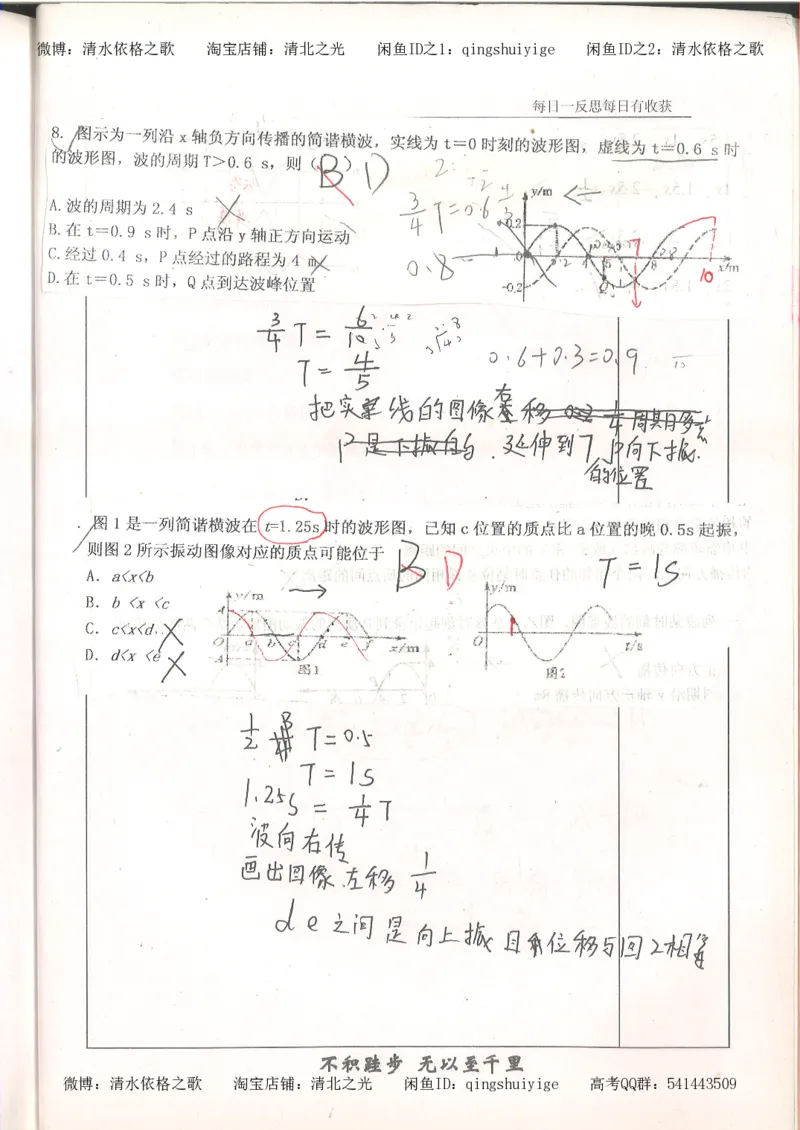 微博：清水依格之歌 淘宝店铺：清北之光 闲鱼ID之1：qingshuiyige 闲鱼ID之2：清水依格之歌
每日一反思每日有收获
8. 图示为一列沿 x 轴负方向传播的简谐横波，实线为 t＝0 时刻的波形图，虚线为 t＝0.6 s 时
的波形图，波的周期 T＞0.6 s，则（B）D
A.波的周期为 2.4 s
B.在 t＝0.9 s 时，P 点沿 y 轴正方向运动
C.经过 0.4 s，P 点经过的路程为 4 m
D.在 t＝0.5 s 时，Q 点到达波峰位置
3/4 T=0.6
0.8
y/m
0.2
0
-0.2
x/m
7
8
10
3/4 T = 6/10
T = 4/5
0.6+0.3=0.9
把实线的图像右移
延伸到7，P向下振
的位置
图 1 是一列简谐横波在 t=1.25s 时的波形图，已知 c 位置的质点比 a 位置的晚 0.5s 起振，
则图 2 所示振动图像对应的质点可能位于 B D
T = 1s
A. a<x<b
B. b <x <c
C. c<x<d
D. d<x <e
y/m
A
O a b c d e f x/m
-A
图1
y/m
O
t/s
图2
1/2 T=0.5
T = 1s
1.25s = 1/4 T
波向右传
画出图像左移 1/4
d e 之间是向上振 且位移与图2相等
不积跬步 无以至千里
微博：清水依格之歌 淘宝店铺：清北之光 闲鱼ID：qingshuiyige 高考QQ群：541443509